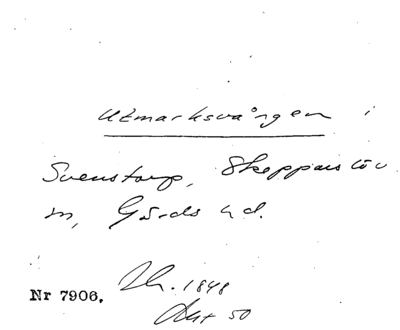 Utmarksvången i
Svenstorp, Skepparslöv
sn, Gärds hd.
Nr 7906. Sk. 1848
Akt 50